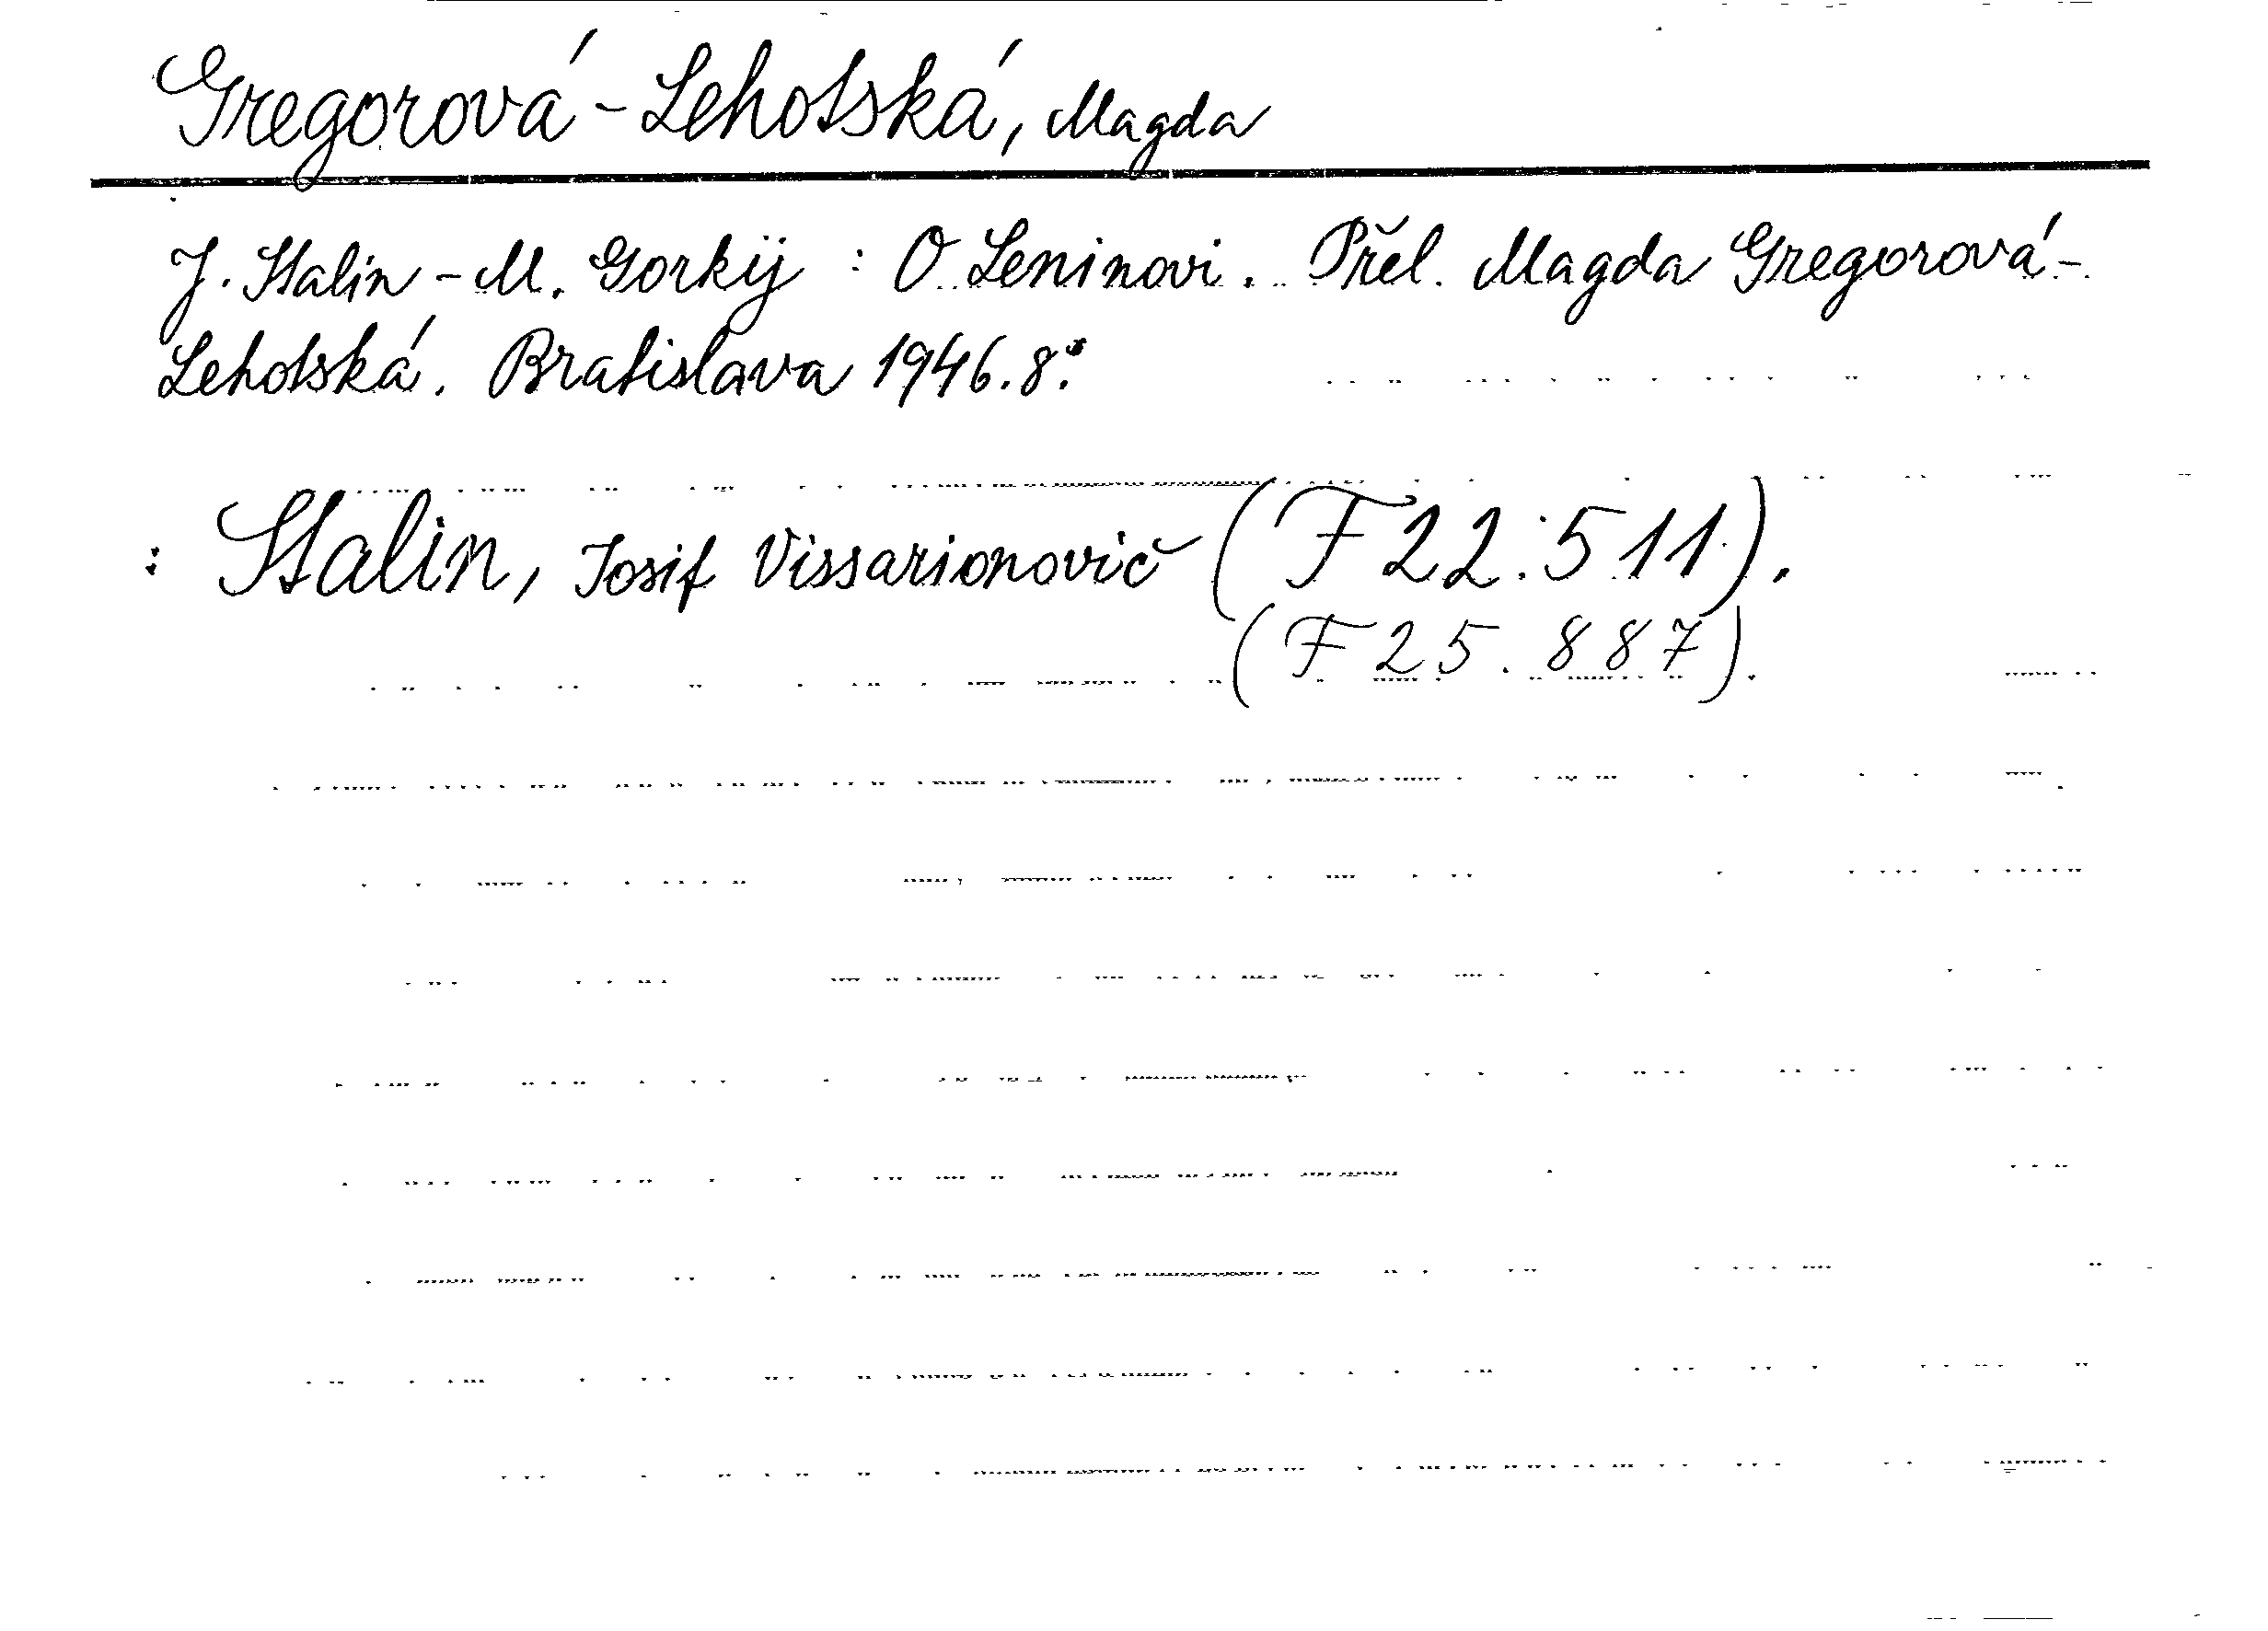 Gregorová-Lehotská, Magda
J. Stalin - M. Gorkij : O Leninovi. Přel. Magda Gregorová-
Lehotská. Bratislava 1946. 8.°
: Stalin, Iosif Vissarionovič (F 22.511).
(F 25.887).